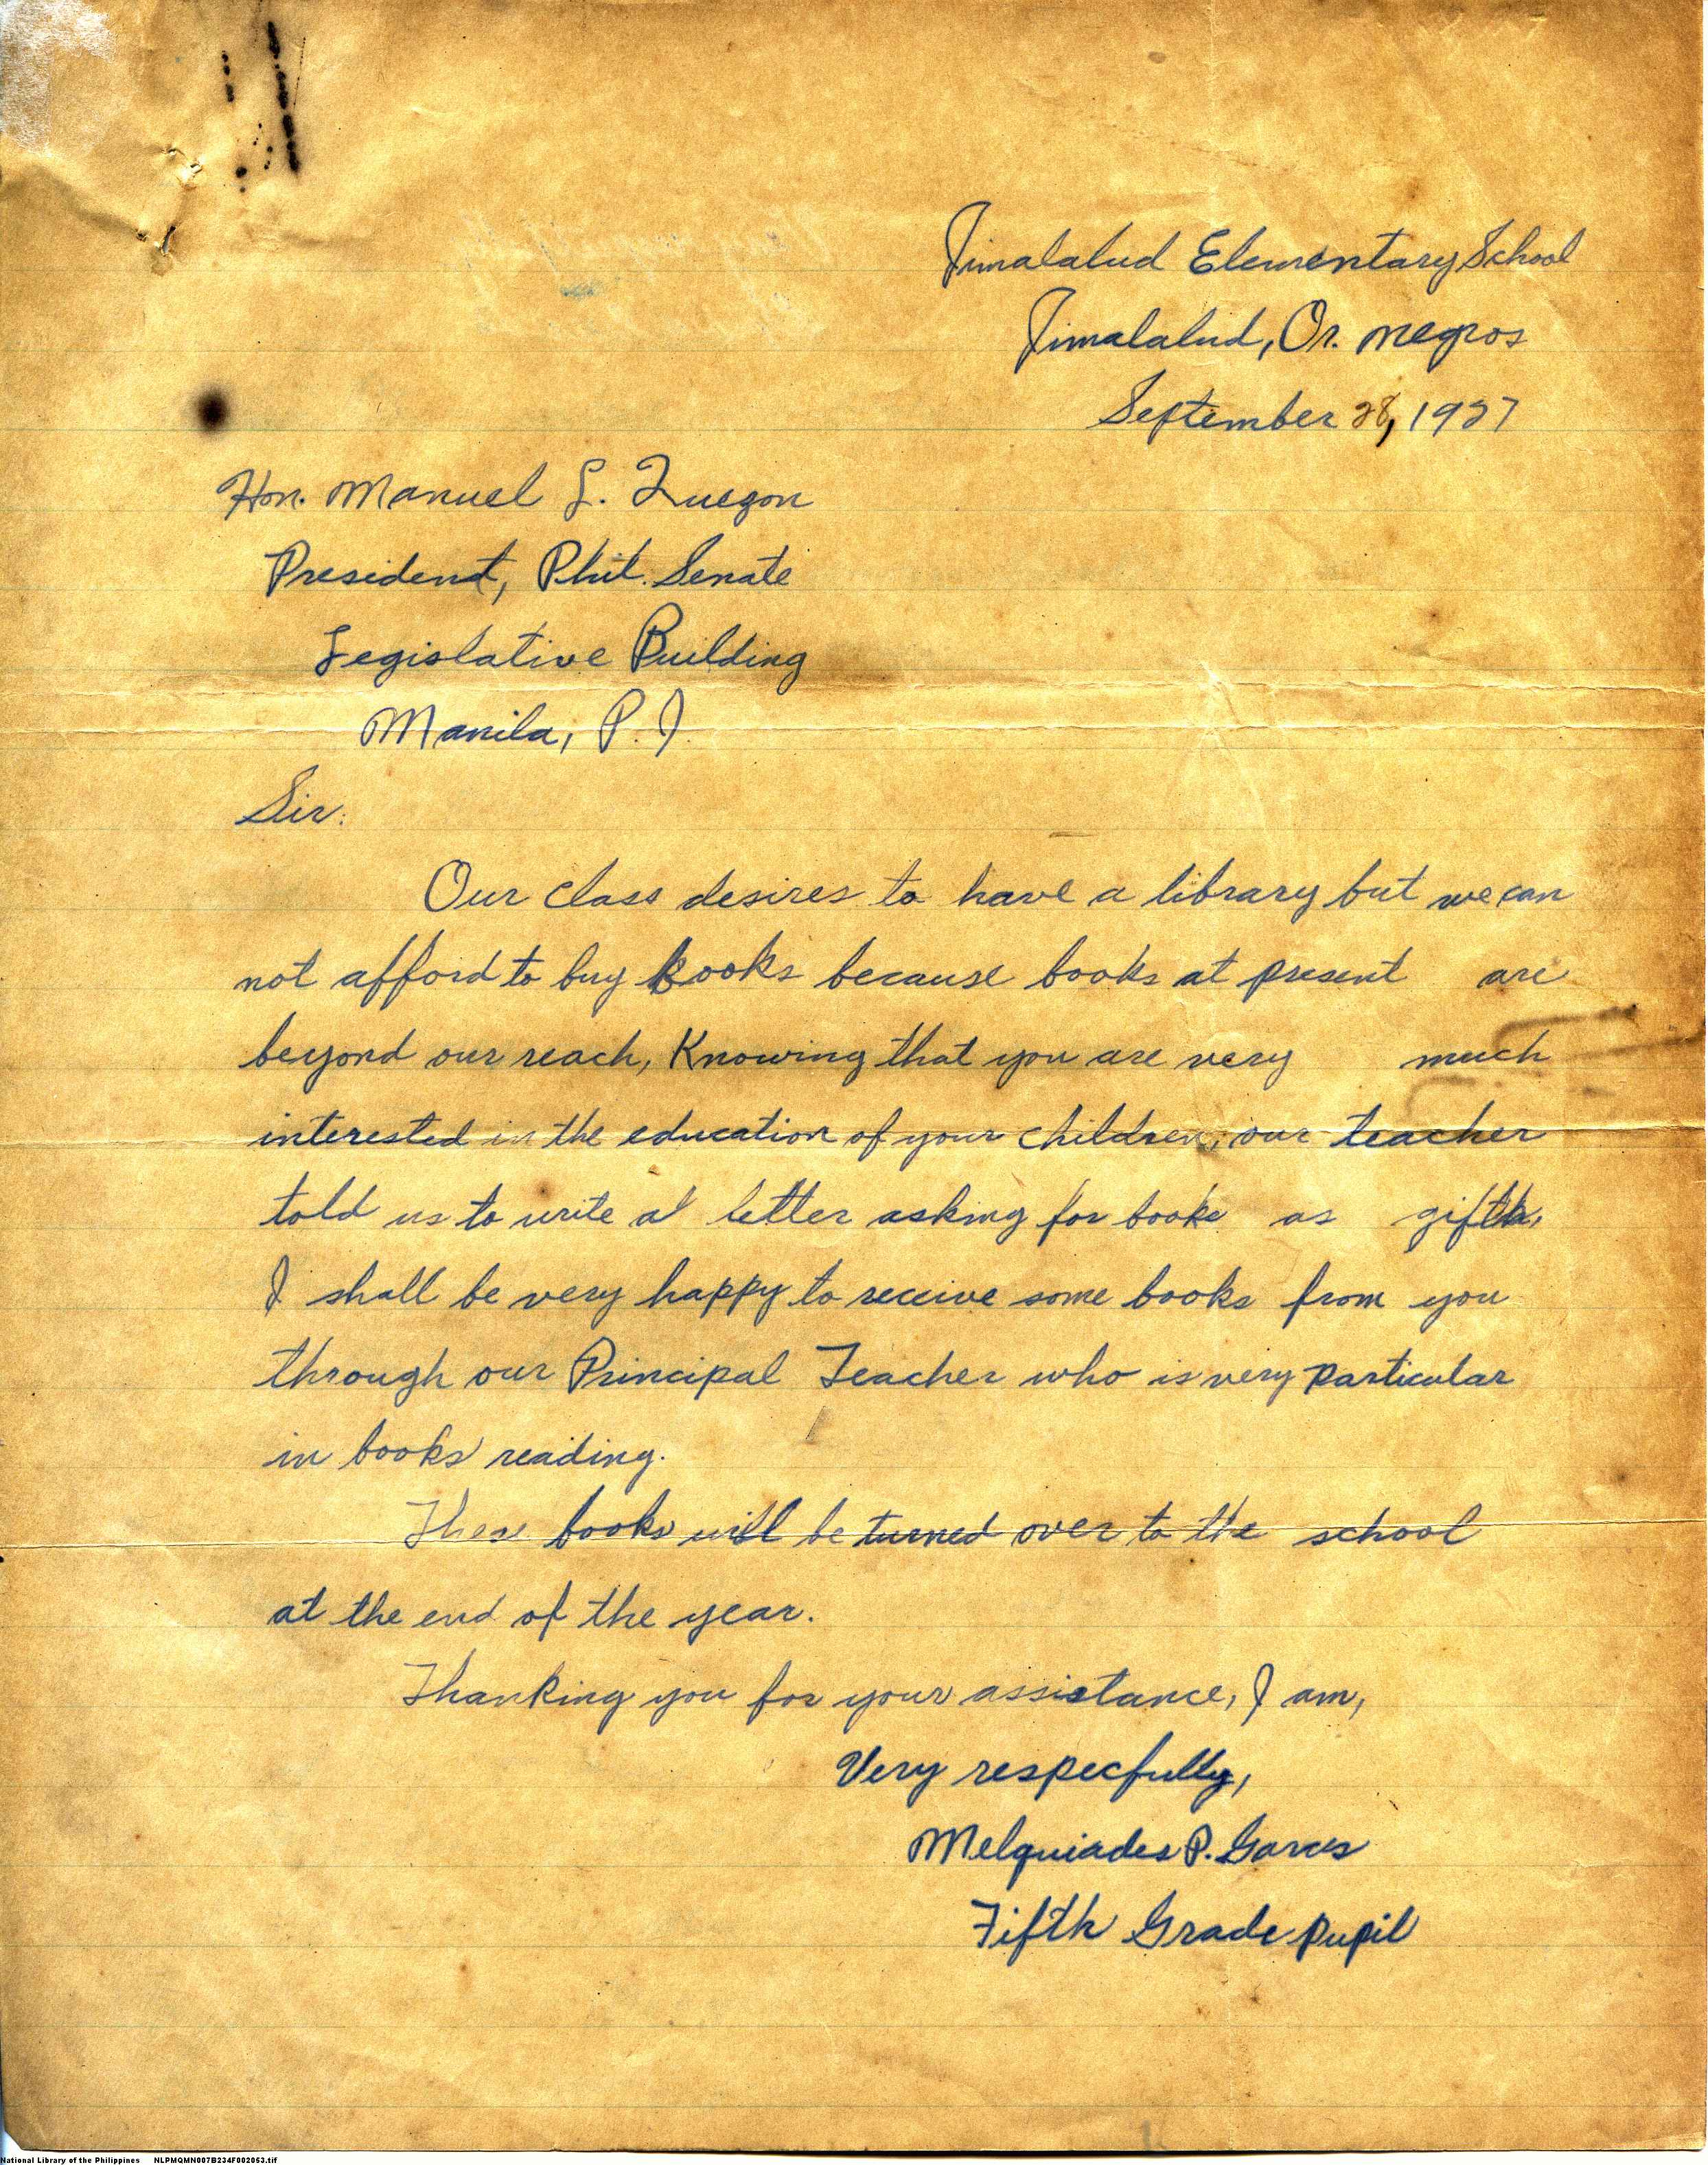 Jimalalud Elementary School
Jimalalud, Or. Negros
September 28, 1927
Hon. Manuel L. Quezon
President, Phil. Senate
Legislative Building
Manila, P. I.
Sir:
Our class desires to have a library but we can
not afford to buy books because books at present are
beyond our reach, Knowing that you are very much
interested in the education of your children, our teacher
told us to write a letter asking for books as gifts.
I shall be very happy to receive some books from you
through our Principal Teacher who is very particular
in books reading.
These books will be turned over to the school
at the end of the year.
Thanking you for your assistance, I am,
Very respecfully,
Melquiades P. Garces
Fifth Grade pupil
National Library of the Philippines NLPMQMN007B234F002053.tif